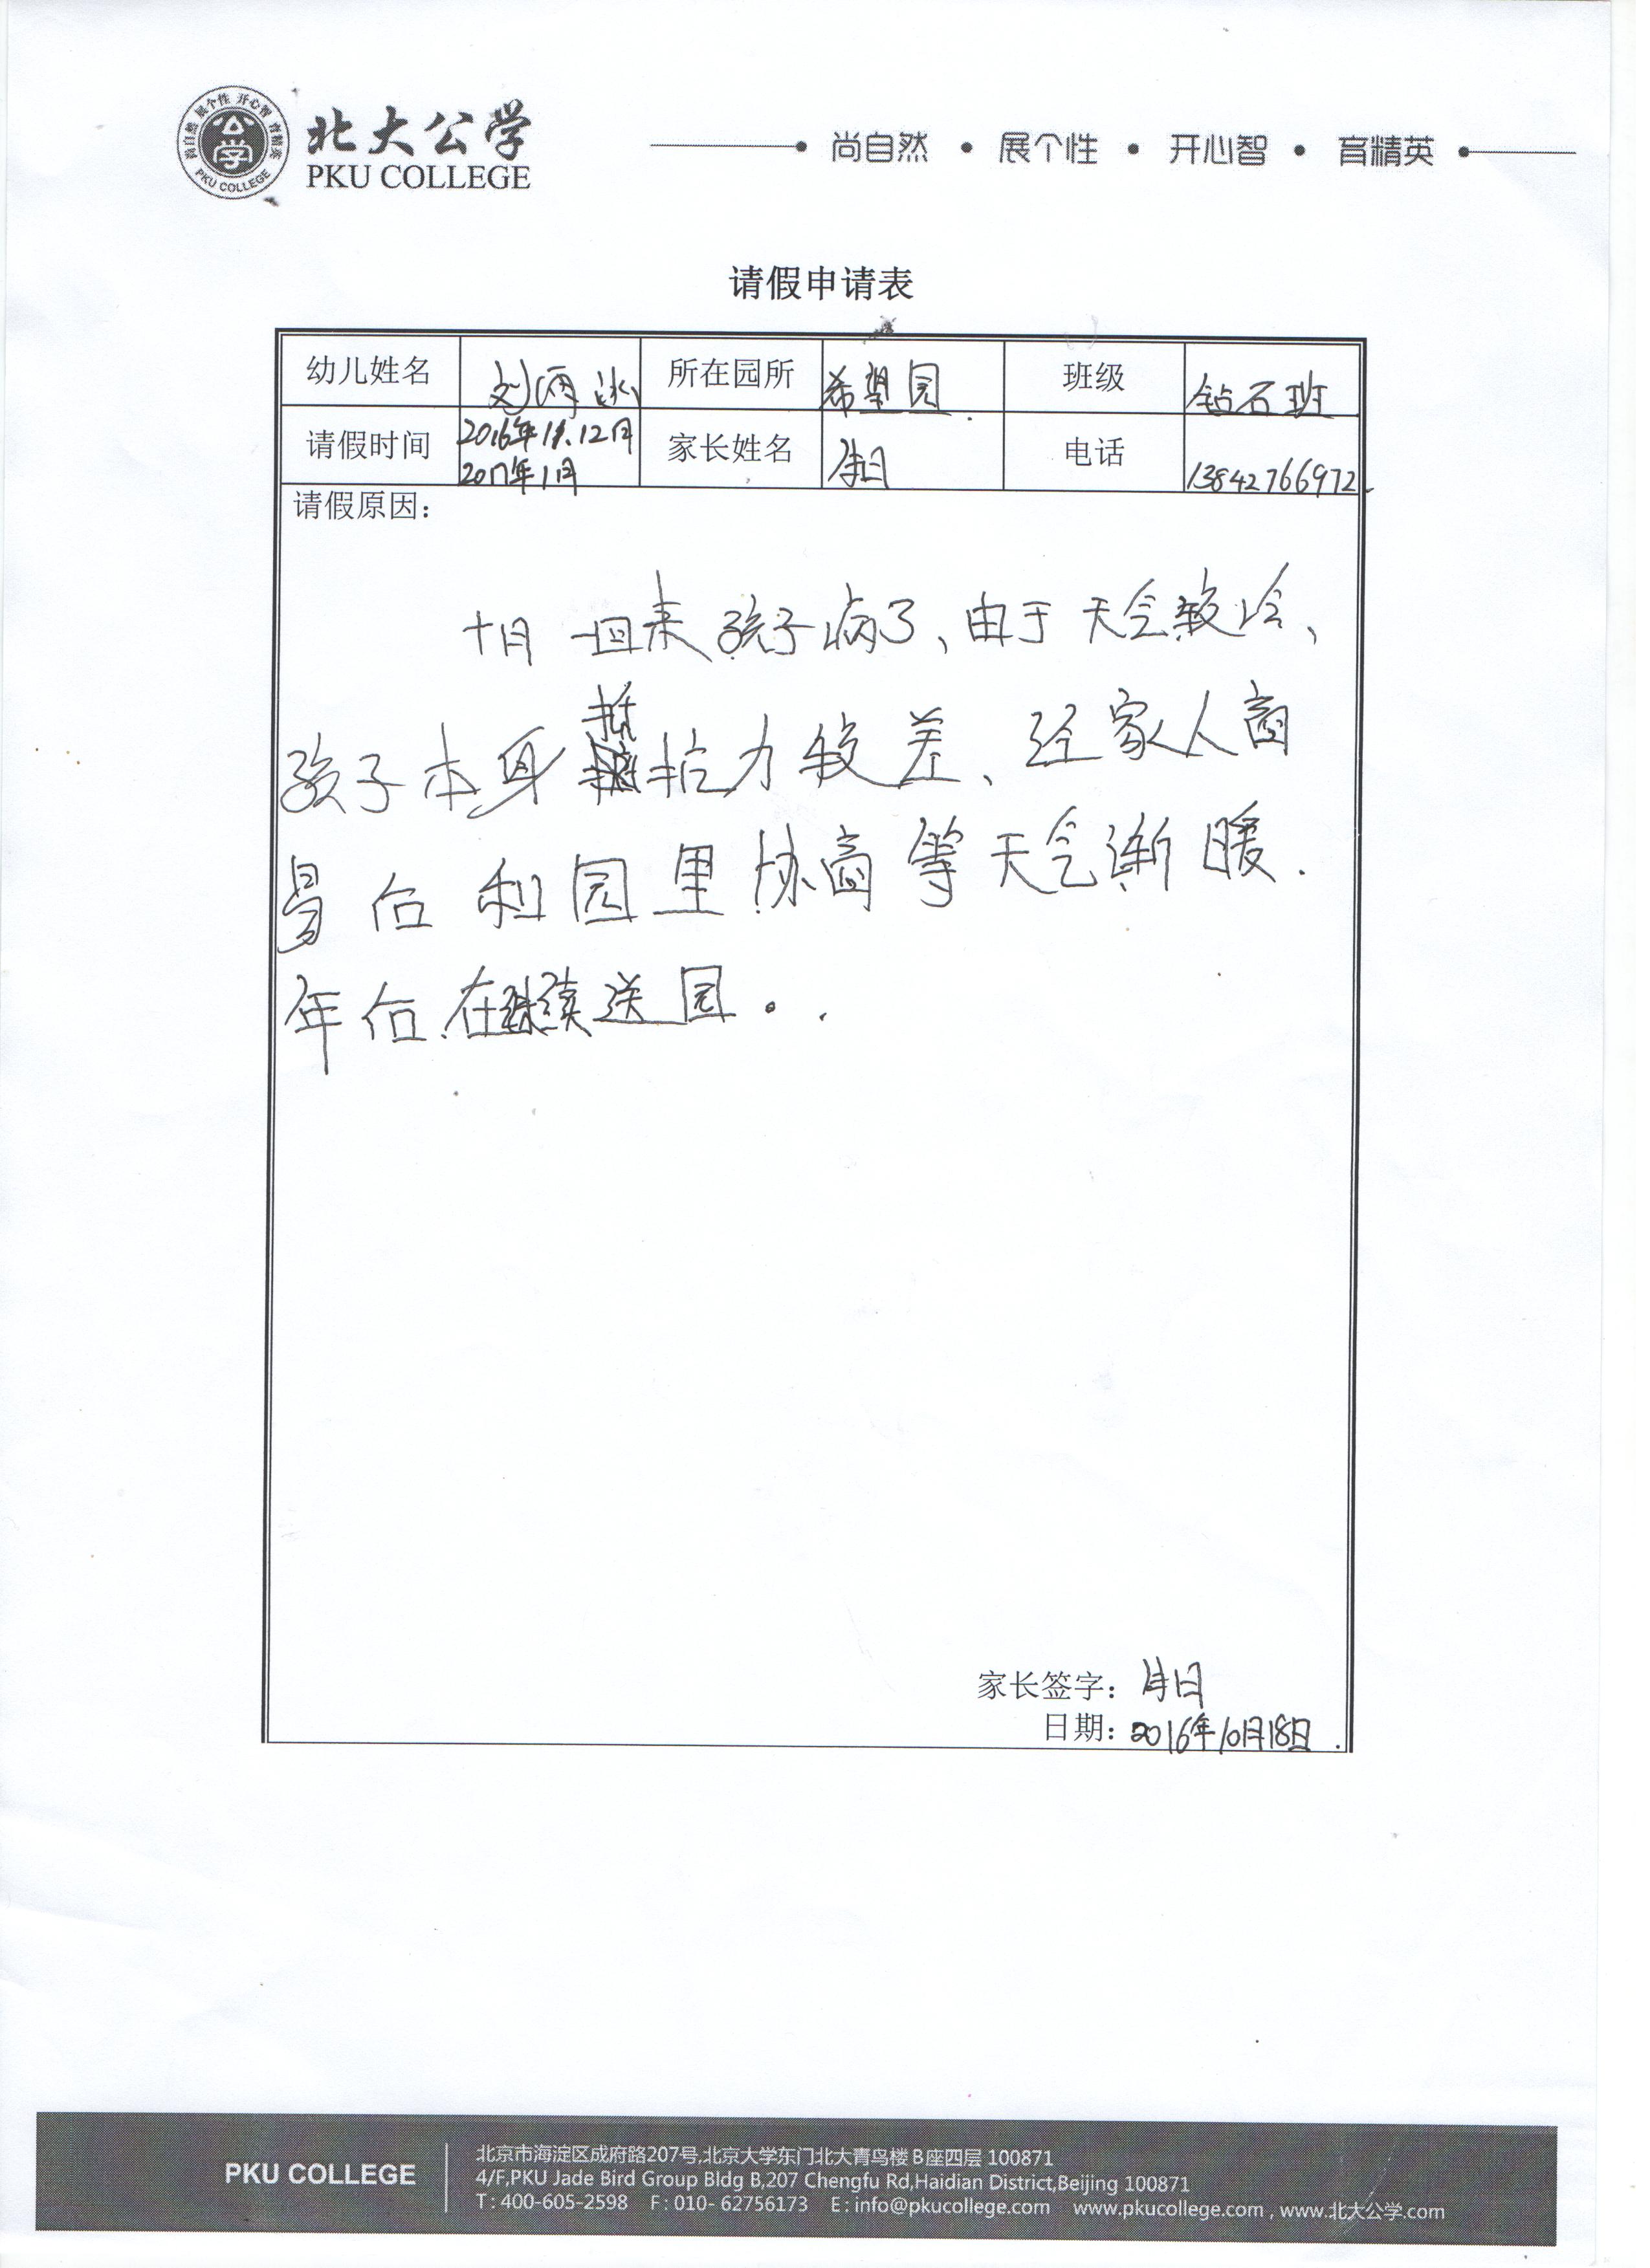 尚自然 展个性 开心智 育精英
学
PKU COLLEGE
北大公学
PKU COLLEGE
尚自然 • 展个性 • 开心智 • 育精英
请假申请表
幼儿姓名 刘雨 所在园所 希望园 班级 钻石班
请假时间 2016年11.12月 2017年1月 家长姓名 电话 13842766972
请假原因：
十月一回来孩子病了、由于天气较冷、
孩子本身抵抗力较差、经家人商
量后和园里协商等天气渐暖.
年后.在继续送园。
家长签字：
日期：2016年10月18日
PKU COLLEGE
北京市海淀区成府路207号,北京大学东门北大青鸟楼B座四层 100871
4/F,PKU Jade Bird Group Bldg B,207 Chengfu Rd,Haidian District,Beijing 100871
T : 400-605-2598 F : 010- 62756173 E : info@pkucollege.com www.pkucollege.com , www.北大公学.com